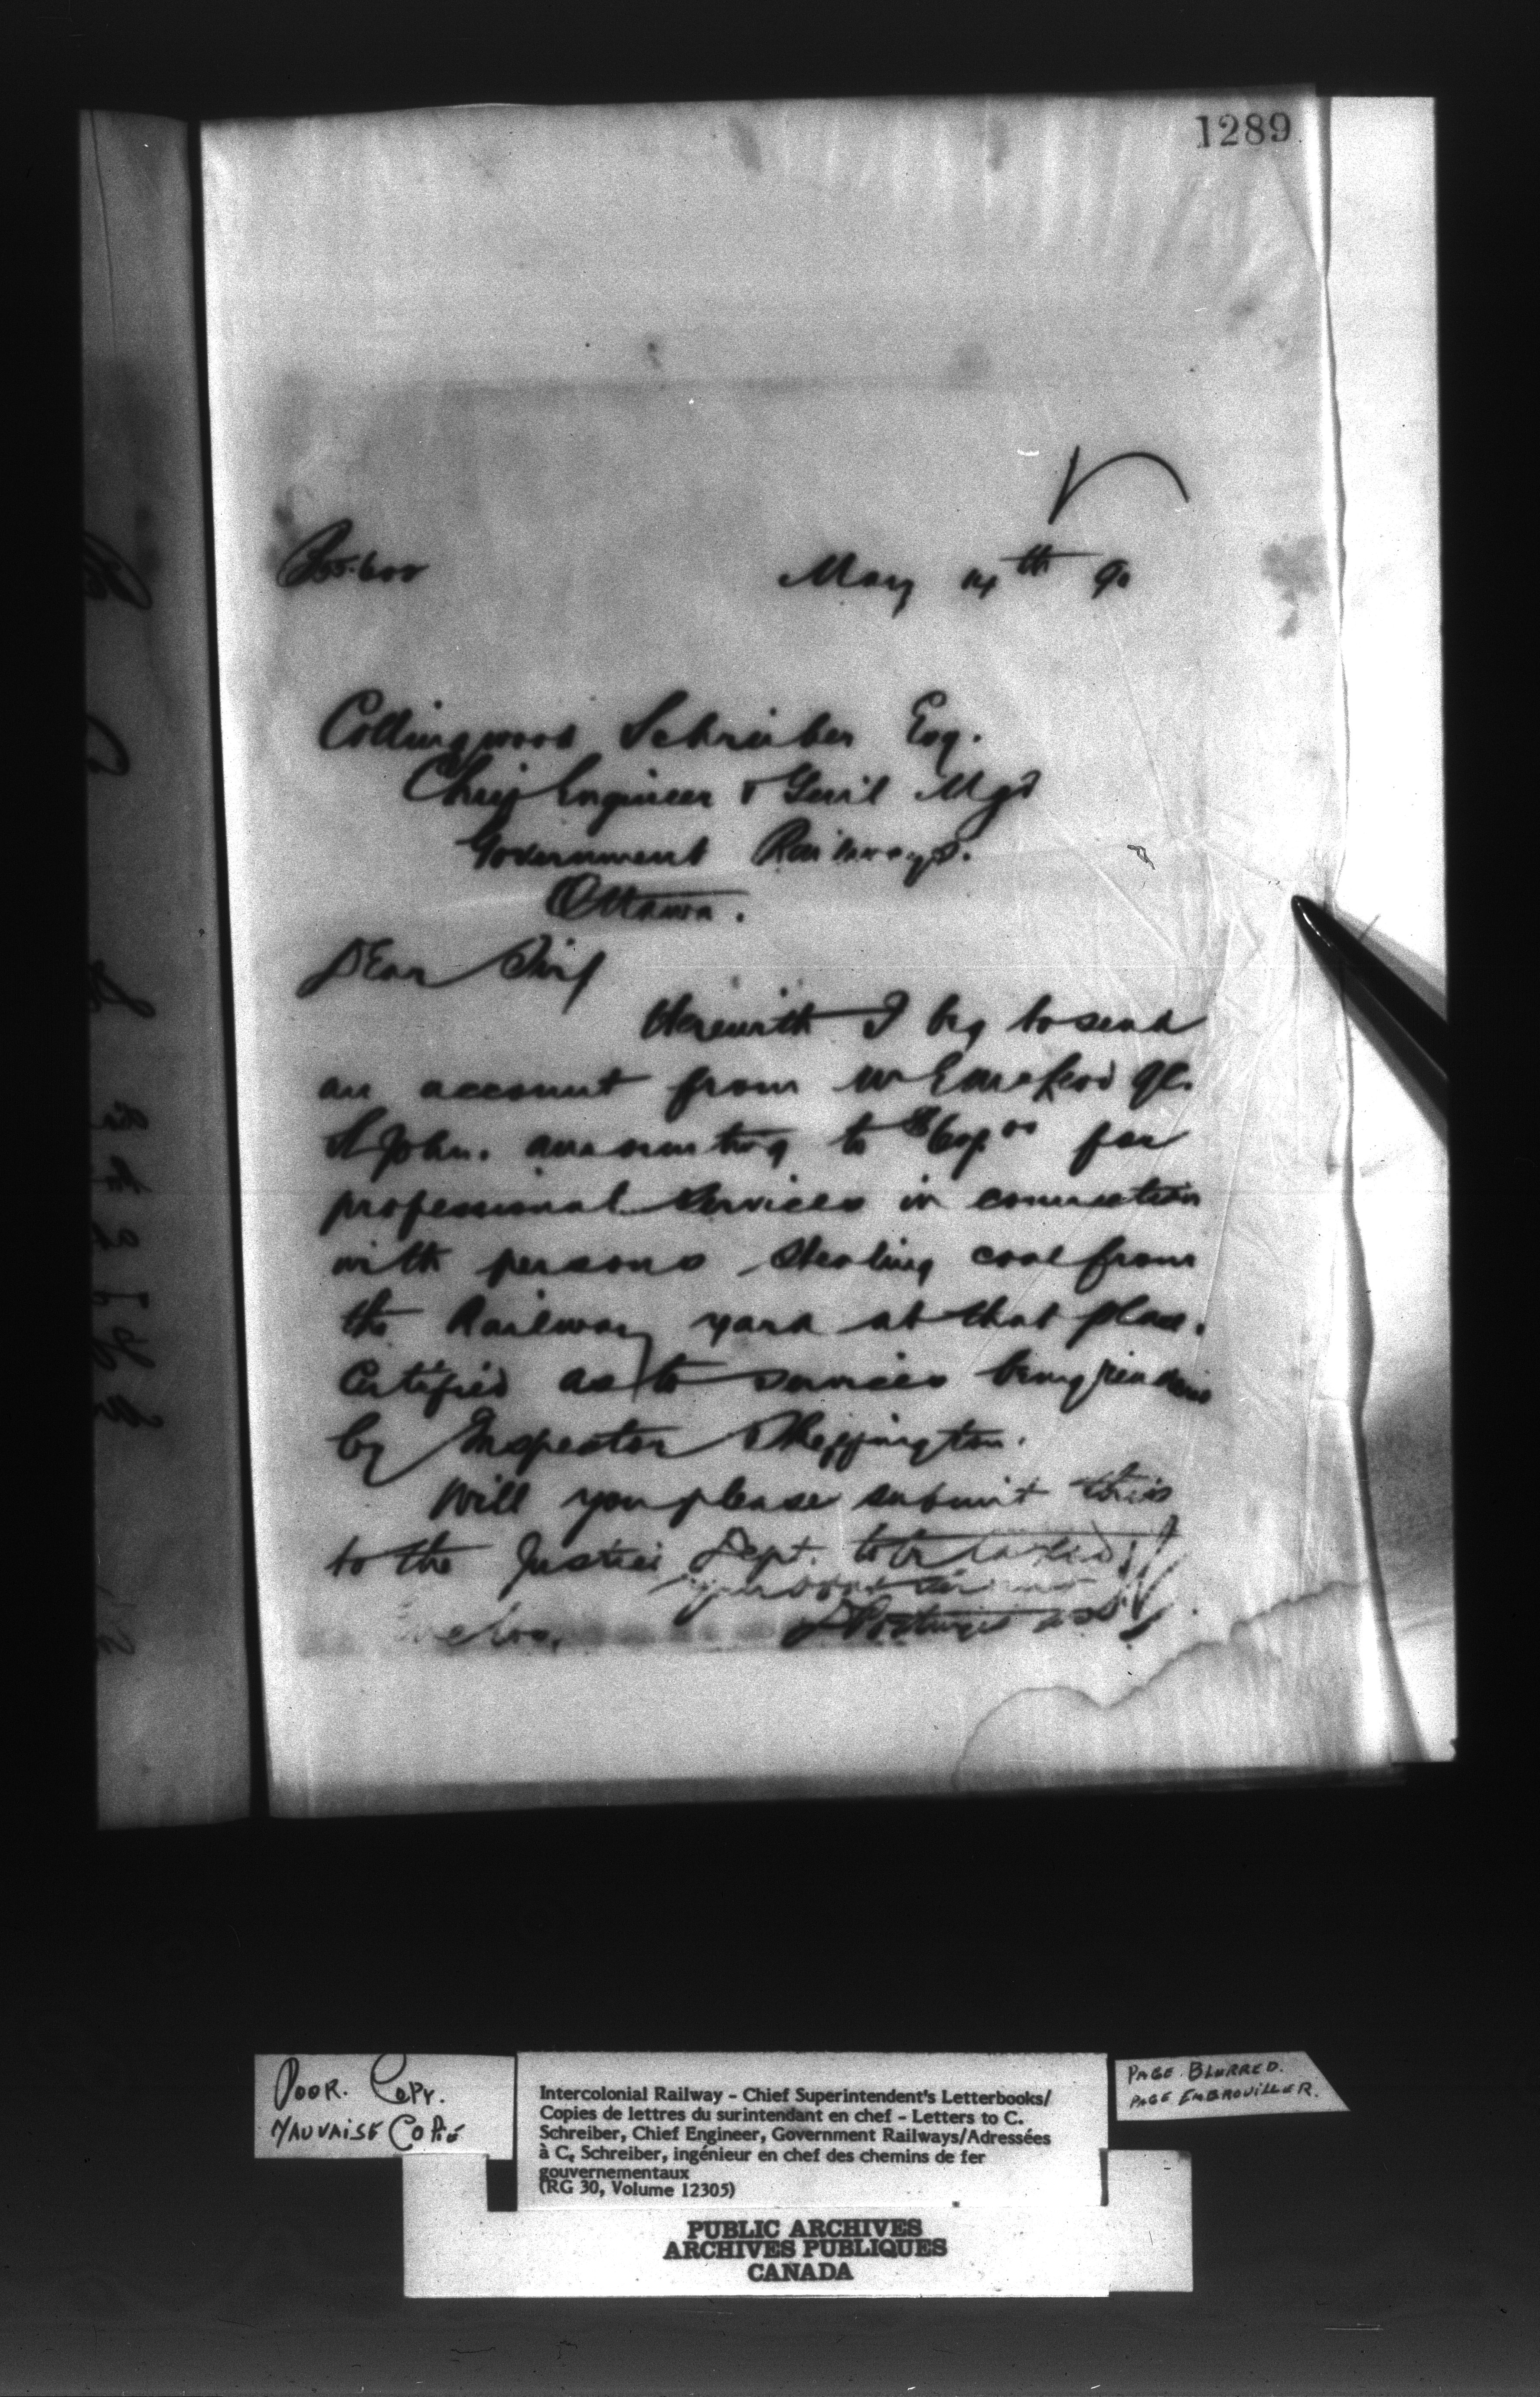 1289
May 14th 90
Collingwood Schreiber Esq.
Chief Engineer & Genl Mgr
Government Railways.
Ottawa.
Dear Sir/
Herewith I beg to send
an account from Mr E McLeod QC.
St John. amounting to for
professional services in connection
with persons stealing coal from
the Railway yard at that place.
Certified as to services being rendered
by Inspector Skeffington.
Will you please submit this
to the Justice Dept. to be taxed.
D Pottinger
POOR. COPY.
MAUVAISE COPIE
Intercolonial Railway - Chief Superintendent's Letterbooks/
Copies de lettres du surintendant en chef - Letters to C.
Schreiber, Chief Engineer, Government Railways/Adressées
à C. Schreiber, ingénieur en chef des chemins de fer
gouvernementaux
(RG 30, Volume 12305)
PAGE BLURRED.
PAGE EMBROUILLER.
PUBLIC ARCHIVES
ARCHIVES PUBLIQUES
CANADA